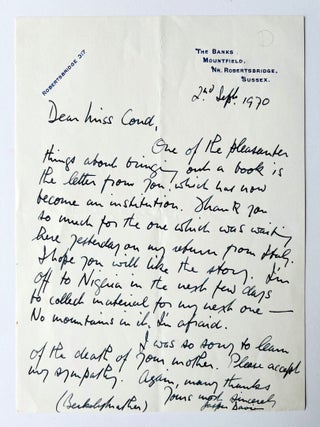 ROBERTSBRIDGE 317
THE BANKS
MOUNTFIELD,
NR. ROBERTSBRIDGE,
SUSSEX.
2nd Sept. 1970
Dear Miss Cond,
One of the pleasanter
things about bringing out a book is
the letter from you which has now
become an institution. Thank you
so much for the one which was waiting
here yesterday on my return from Italy.
I hope you will like the story. I'm
off to Nigeria in the next few days
to collect material for my next one —
No mountains in it, I'm afraid.
I was so sorry to learn
of the death of your mother. Please accept
my sympathy. Again, many thanks
Yours most sincerely
(Berkely Mather) Davies